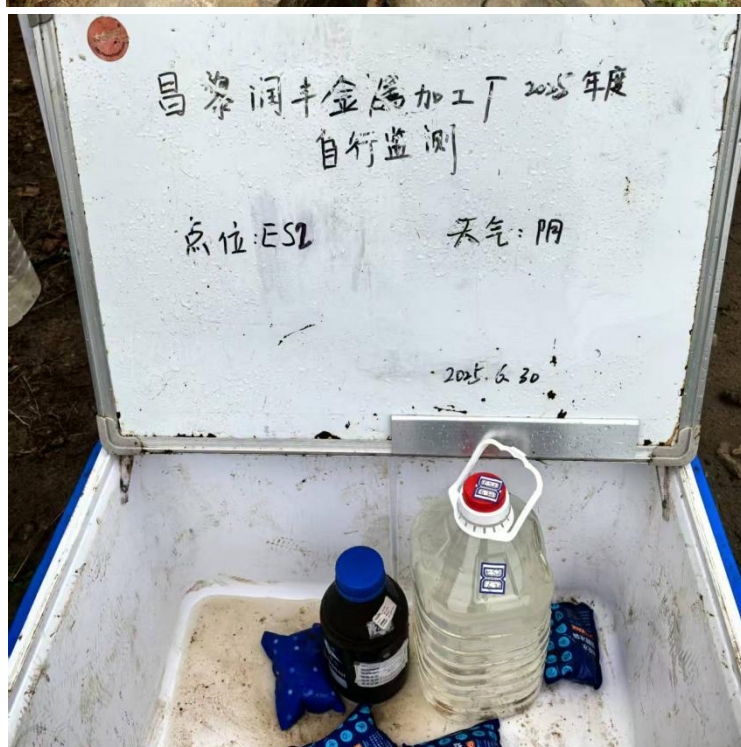 昌黎润丰金属加工厂 2025年度
自行监测
点位:ES2 天气:阴
2025.6.30